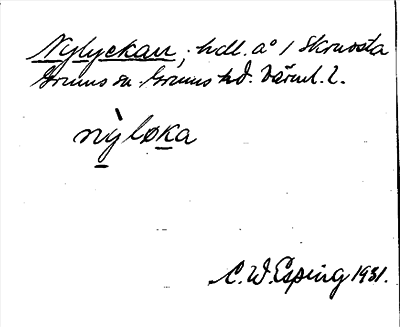 Nylyckan, hdl. a° 1 Skruvsta
Grums sn. Grums hd. Värml. l.
nỳløka
C. W. Esping 1931.